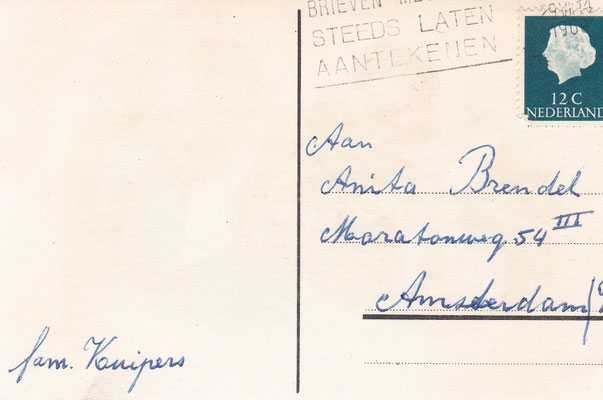 BRIEVEN
STEEDS LATEN
AANTEKENEN
12 C
NEDERLAND
Aan
Anita Brendel
Maratonweg 54 III
Amsterdam/
fam. Kuipers